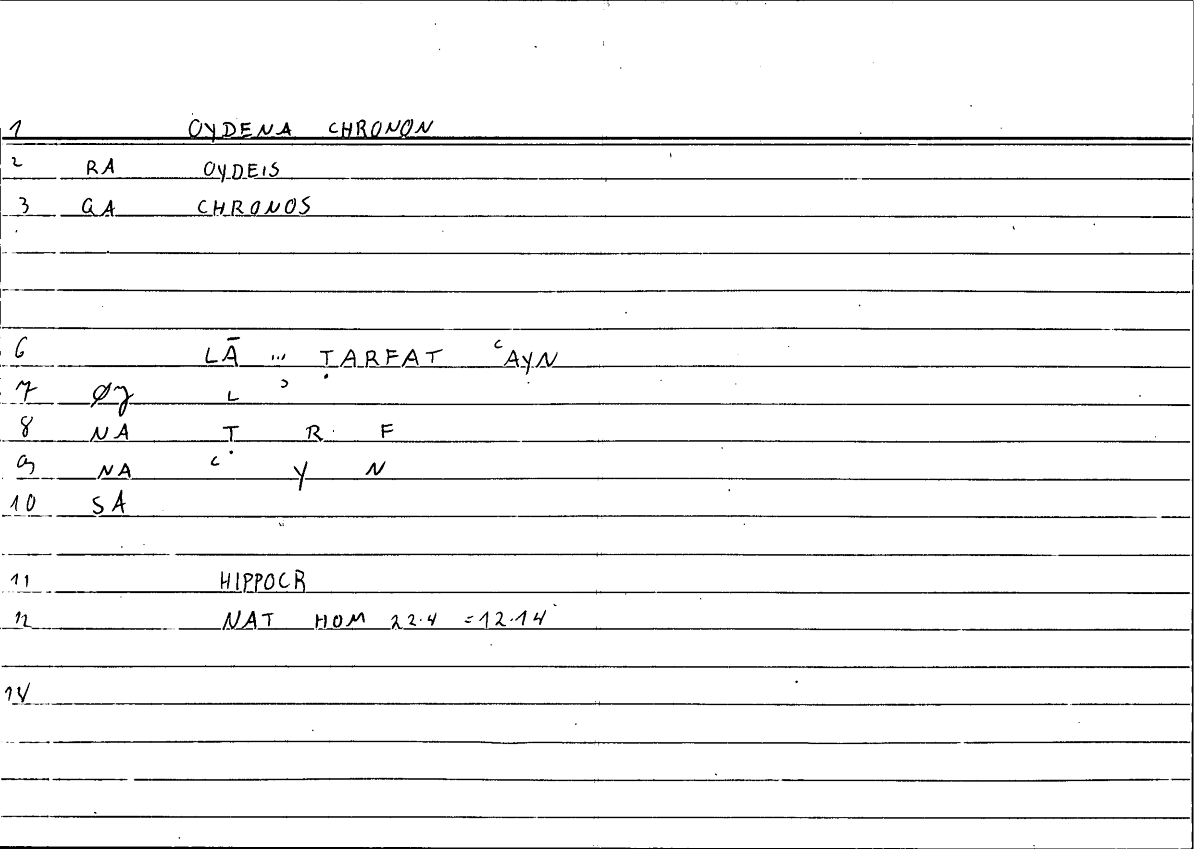 1 OYDENA CHRONON
2 RA OYDEIS
3 QA CHRONOS
6 LĀ ... ṬARFAT ʿAYN
7 ØJ L ʾ
8 NA Ṭ R F
9 NA ʿ Y N
10 SA
11 HIPPOCR
12 NAT HOM 22.4 =12.14
14